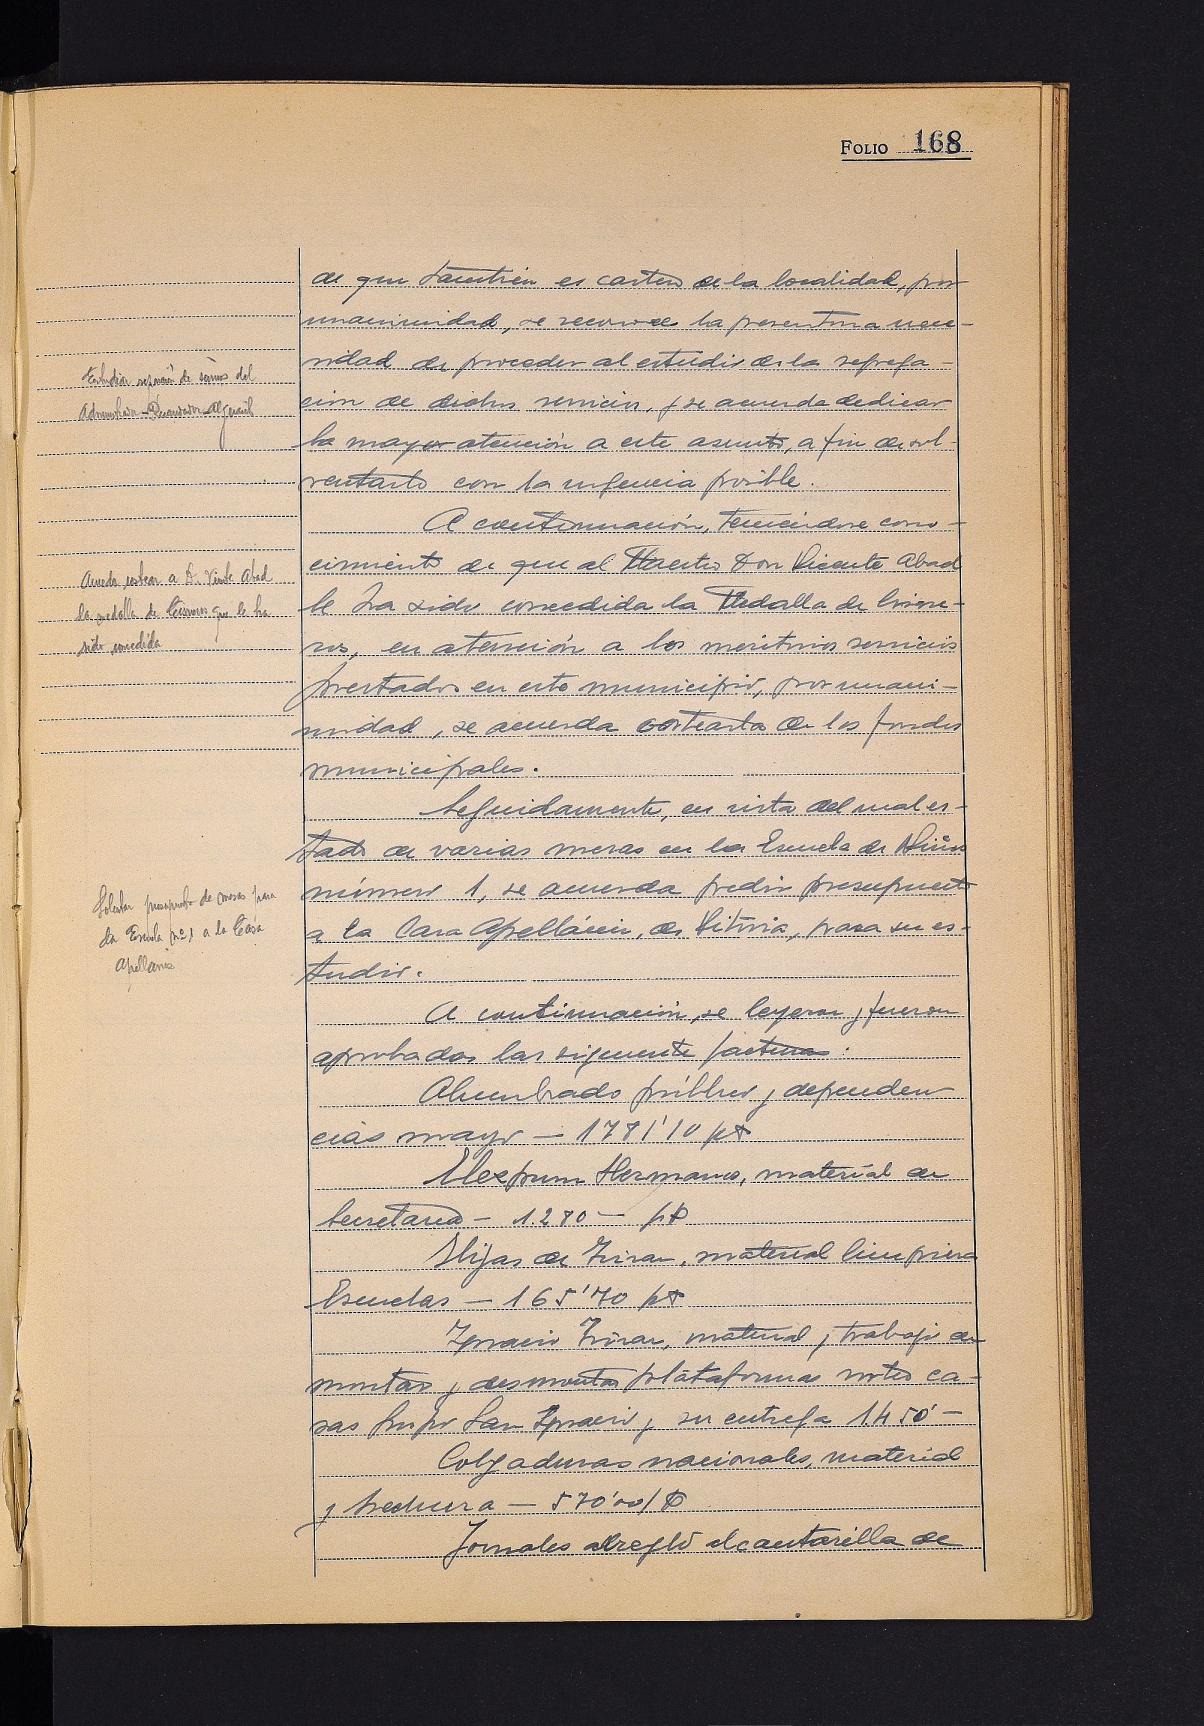 FOLIO 168
de que también es cartero de la localidad, por
unanimidad, se reconoce la perentoria nece-
sidad de proceder al estudio de la segrega-
ción de dichos servicios, y se acuerda dedicar
la mayor atención a este asunto, a fin de sol-
ventarlo con la urgencia posible.
Estudiar separación de servicios del
Administrador Recaudador Alguacil
A continuación, teniéndose cono-
cimiento de que al Maestro Don Vicente Abad
le ha sido concedida la Medalla de Cisne-
ros, en atención a los meritorios servicios
prestados en este municipio, por unani-
midad, se acuerda costearla de los fondos
municipales.
Acuerdo costear a D. Vicente Abad
la medalla de Cisneros que le ha
sido concedida
Seguidamente, en vista del mal es-
tado de varias mesas en la Escuela de Niños
número 1, se acuerda pedir presupuesto
a la Casa Apellániz, de Vitoria, para su es-
tudio.
Solicitar presupuesto de mesas para
la Escuela nº 1 a la Casa
Apellaniz
A continuación, se leyeron y fueron
aprobadas las siguiente facturas:
Alumbrado público y dependen
cias mayo — 1781'10 pts
Hermanos, material de
Secretaria — 1.280 — pts
Hijas de Irizar, material limpieza
Escuelas — 165'70 pts
Ignacio Irizar, material y trabajo de
montar y desmontar plataformas sorteo ca-
sas Grupo San Ignacio y su entrega 1450' —
Colgaduras nacionales, material
y hechura — 570'00 pts
Jornales arreglo alcantarilla de